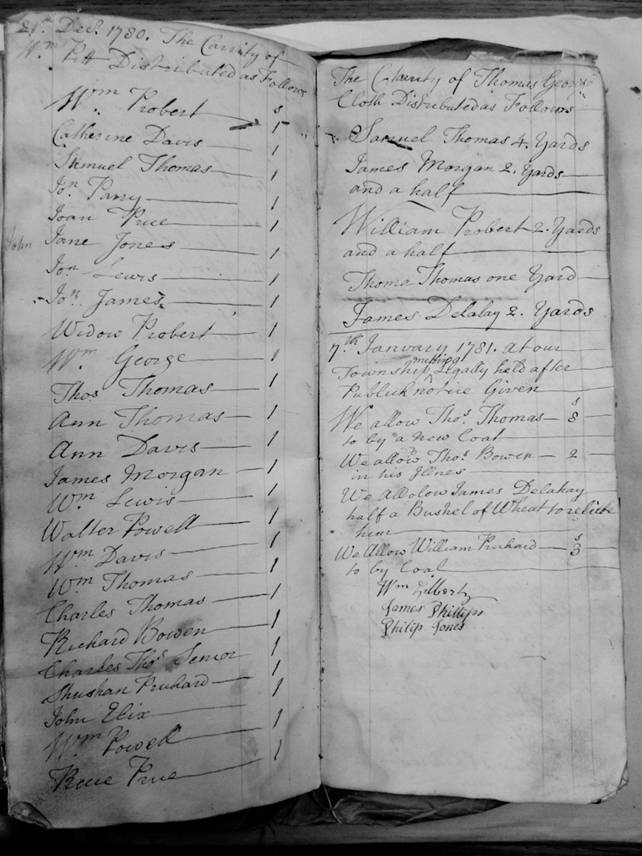 21st Decr. 1780. The Carrity of
Wm Pitt Distributed as Follows
s
Wm Probert 1
Catherine Davis 1
Shmuel Thomas 1
Jon Parry 1
Joan Prue 1
John Jane Jones 1
Jon Lewis 1
Jon James 1
Widow Probert 1
Wm George 1
Thos Thomas 1
Ann Thomas 1
Ann Davis 1
James Morgan 1
Wm Lewis 1
Walter Powell 1
Wm Davis 1
Wm Thomas 1
Charles Thomas 1
Richard Bowen 1
Charles Thos Senior 1
Shushan Pruhard 1
John Elix 1
Wm Powell 1
Prue 1
The Charity of Thomas George
Cloth Distributed as Follows
Samuel Thomas 4. Yards
James Morgan 2. Yards
and a half
William Probert 2. Yards
and a half
Thoma Thomas one Yard
James Delahay 2. Yards
7th January 1781. at our
Township meeting Legally held after
Publick notice Given
s
We allow Thos Thomas 8
to by a new Coat
We allow Thos Bowen 2
in his Ilnes
We Allolow James Delahay
half a Bushel of Wheat to relieve
him
s
We Allow William Pruhard 3
to by Coal
Wm Gilbert
James Phillips
Philip Jones